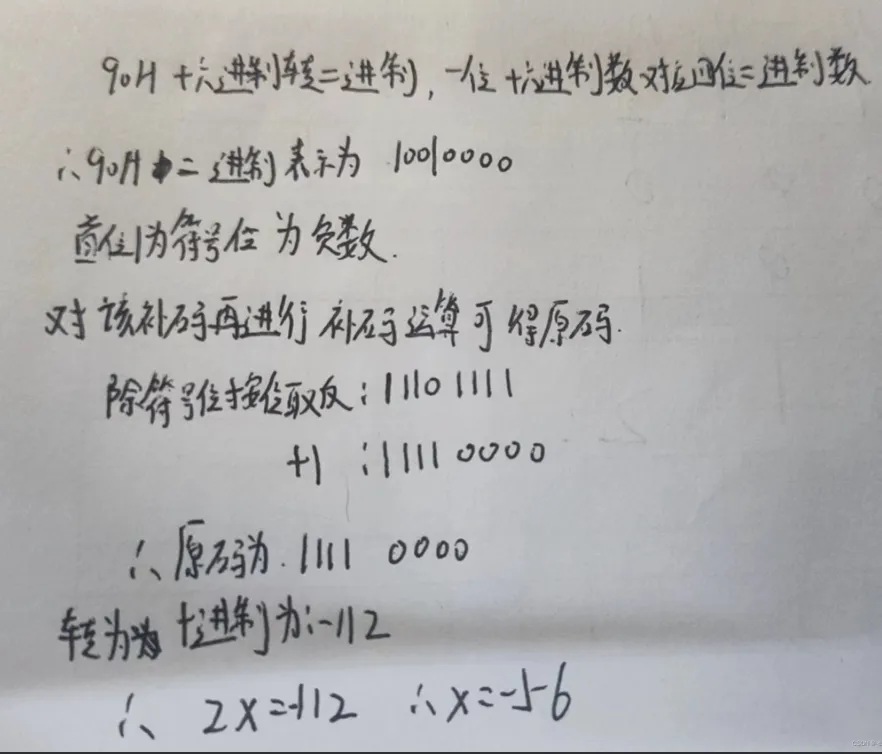 90H 十六进制转二进制,一位十六进制数对应四位二进制数
∴90H 二进制表示为 10010000
首位1为符号位 为负数.
对该补码再进行补码运算可得原码.
除符号位按位取反:11101111
+1 :1111 0000
∴原码为.1111 0000
转为十进制为:-112
∴ 2X=-112 ∴X=-56